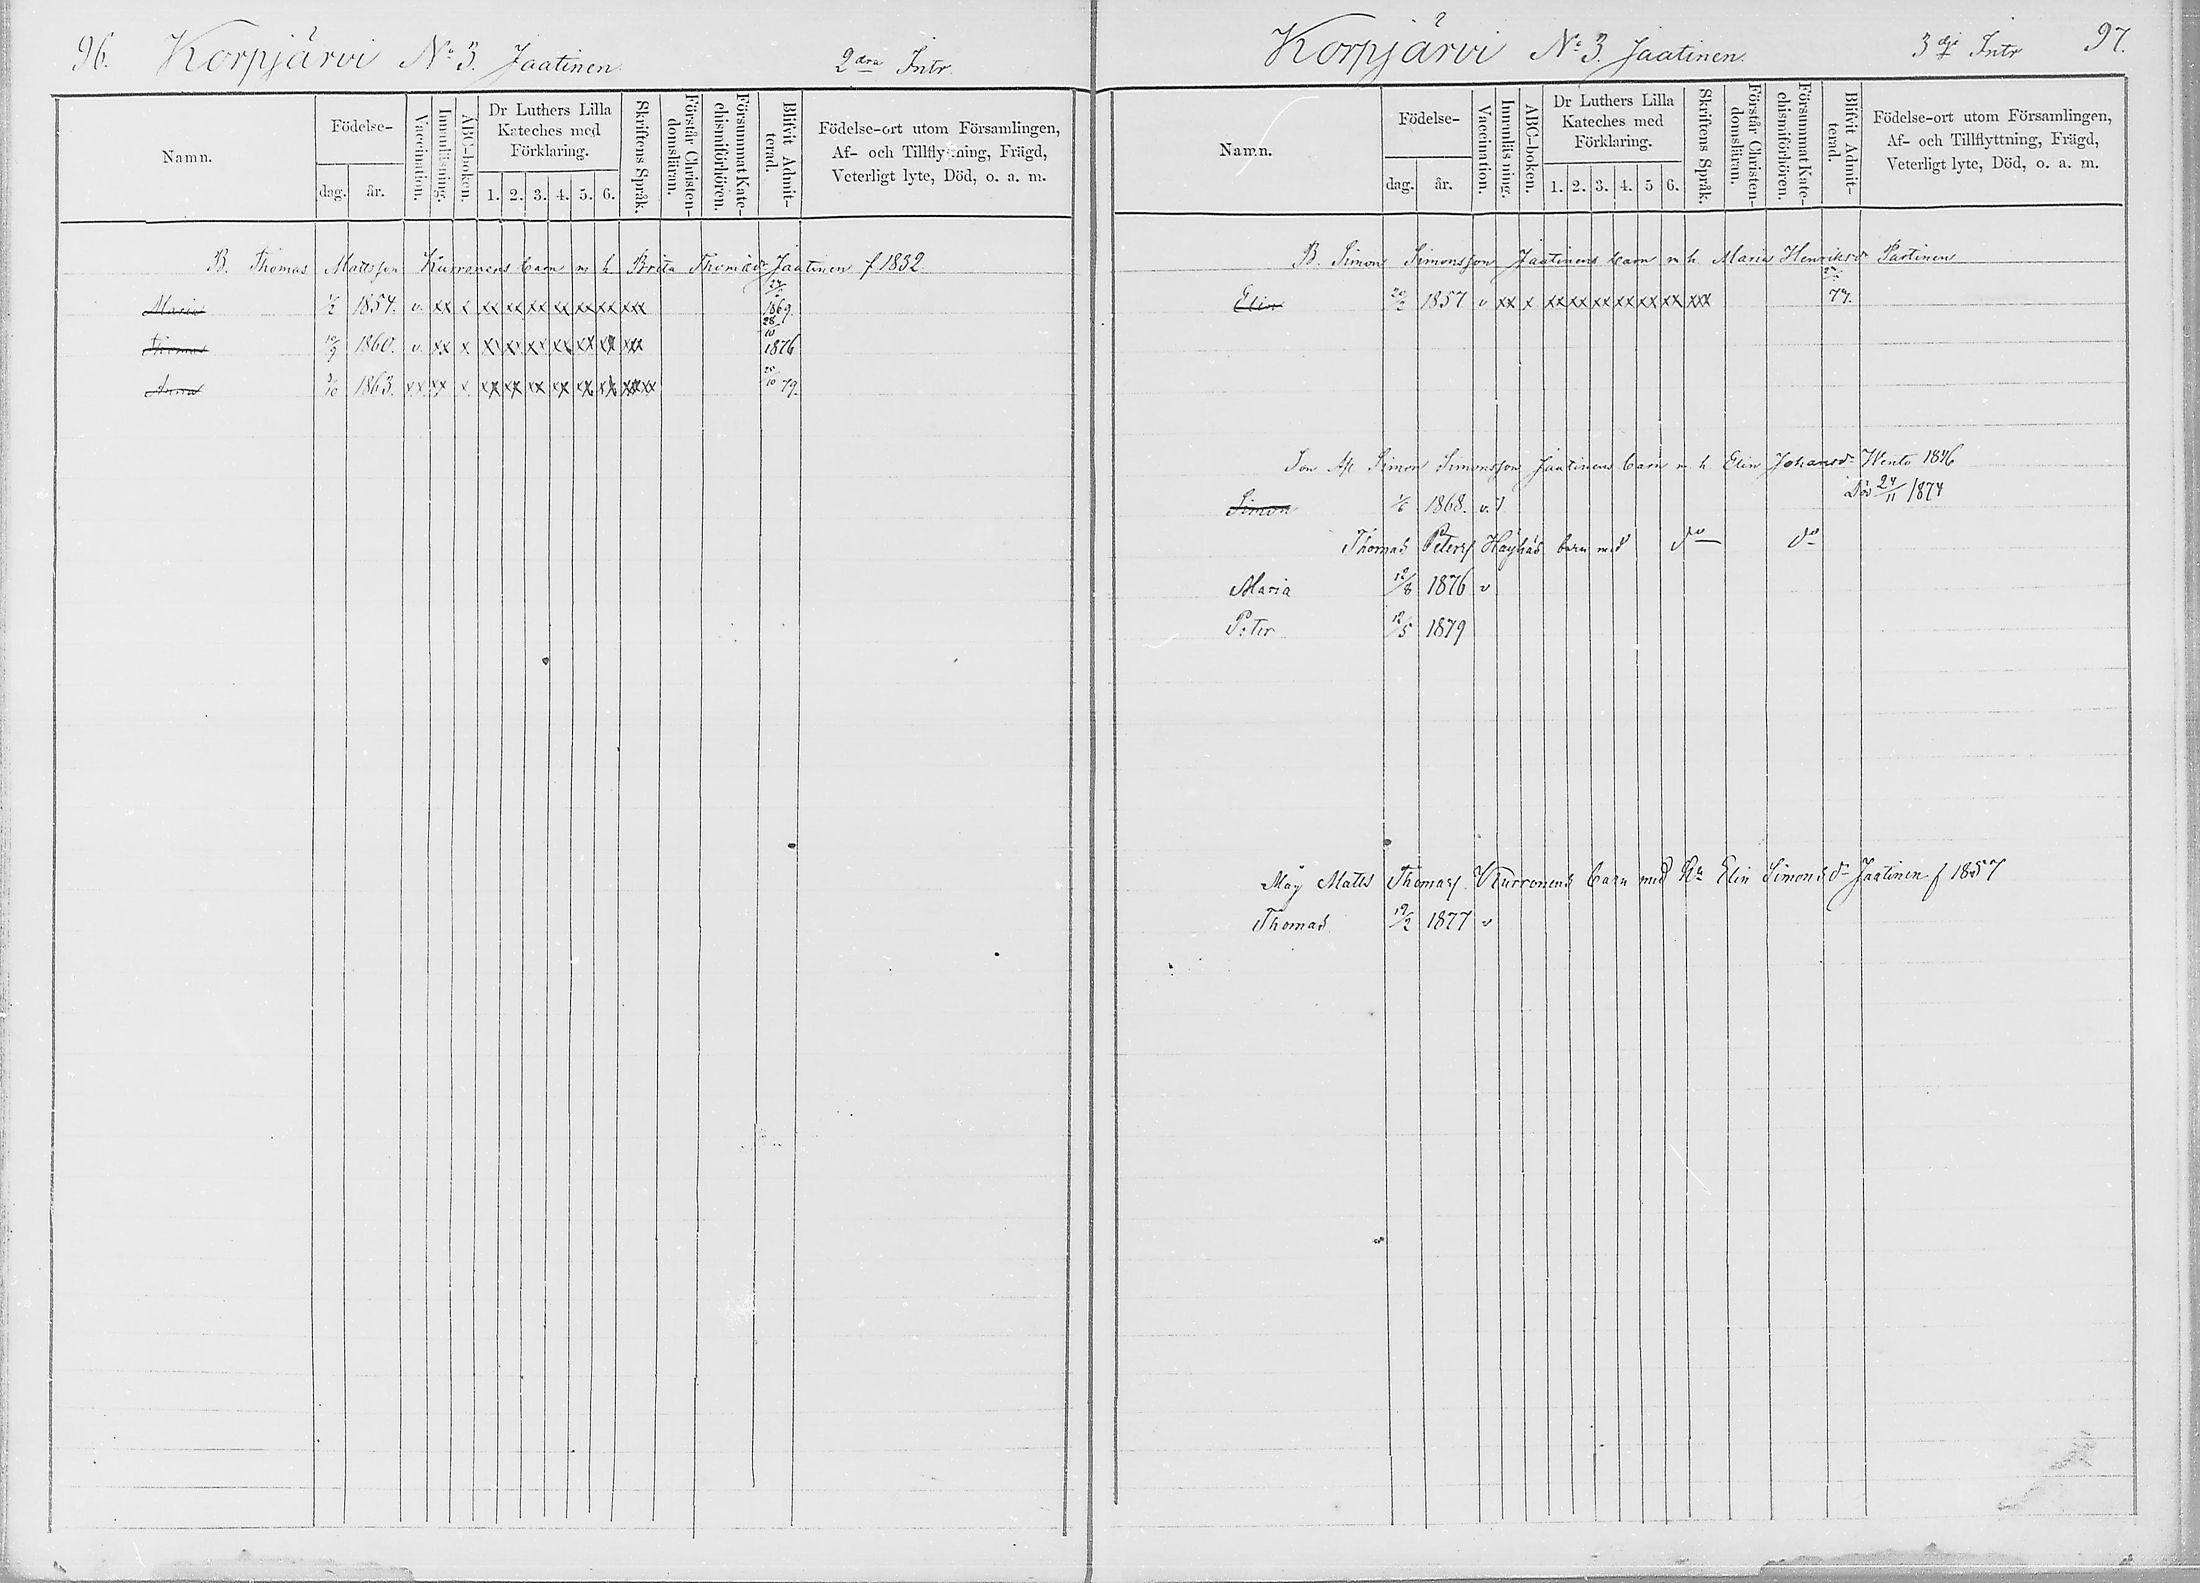 96. Korpjärvi No 3. Jaatinen 2dra Intr
Namn.
Födelse-
dag.
år.
Vaccination.
Innanläsning.
ABC-boken.
Dr Luthers Lilla
Kateches med
Förklaring.
1. 2. 3. 4. 5. 6.
Skriftens Språk.
Förstår Christen-
domsläran.
Försummat Kate-
chismiförhören.
Blifvit Admit-
terad.
Födelse-ort utom Församlingen,
Af- och Tillflyttning, Frägd,
Veterligt lyte, Död, o. a. m.
B. Thomas Mattsson Kurronens barn m h Brita Thomædr Jaatinen f 1832
Maria 1854. v. xx x xx xx xx xx xx xx xxx 1869.
Thomas 1860. v. xx x xx xx xx xx xx xx xxx 28/10 1876
Anna 1863. xx xx x xx xx xx xx xx xx xxxx 79.
Korpjärvi No 3. Jaatinen. 3dje Intr 97.
Namn.
Födelse-
dag.
år.
Vaccination.
Innanläsning.
ABC-boken.
Dr Luthers Lilla
Kateches med
Förklaring.
1. 2. 3. 4. 5 6.
Skriftens Språk.
Förstår Christen-
domsläran.
Försummat Kate-
chismiförhören.
Blifvit Admit-
terad.
Födelse-ort utom Församlingen,
Af- och Tillflyttning, Frägd,
Veterligt lyte, Död, o. a. m.
B. Simon Simonsson Jaatinens barn m h Maria Henriksdr Partinen
Elin 1857 v xx x xx xx xx xx xx xx xxx 74.
Son Af. Simon Simonsson Jaatinens barn m h Elin Johansdr Wento 1846
Simon 1868. v. Död 24/11 1874
Thomas Peterss Häyhäs barn med do do
Maria 12/8 1876 v
Peter 12/5 1879
Måg Matts Thomass Kurronens barn med Hu Elin Simonsdr Jaatinen f 1857
Thomas 19/2 1877 v